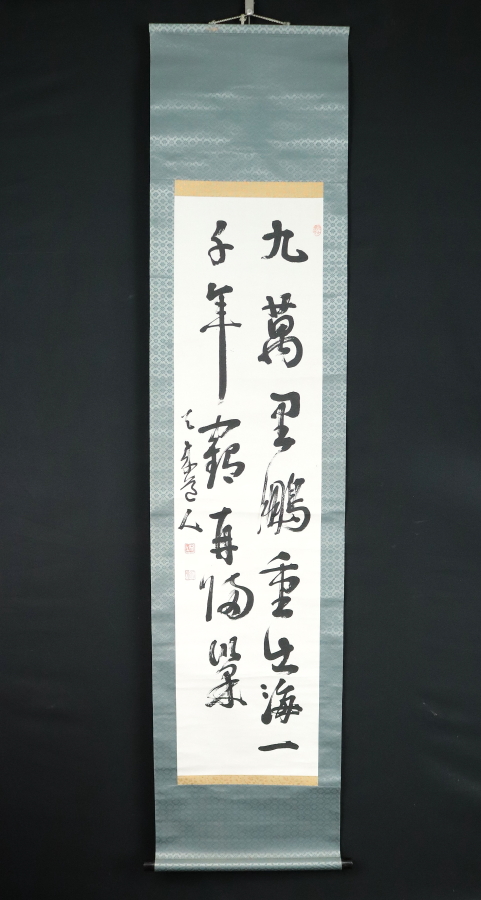 九萬里鵬重出海一
千年鶴再歸巢
道人